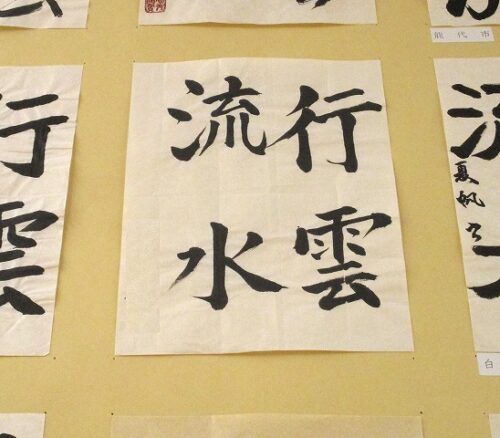 行雲
流水
行
雲
夏帆
能代市
白